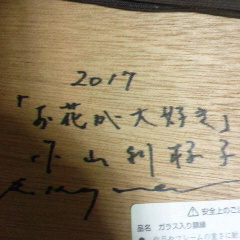 2017
「お花が大好き」
小山利枝子
⚠安全上のご注
品名 ガラス入り額縁